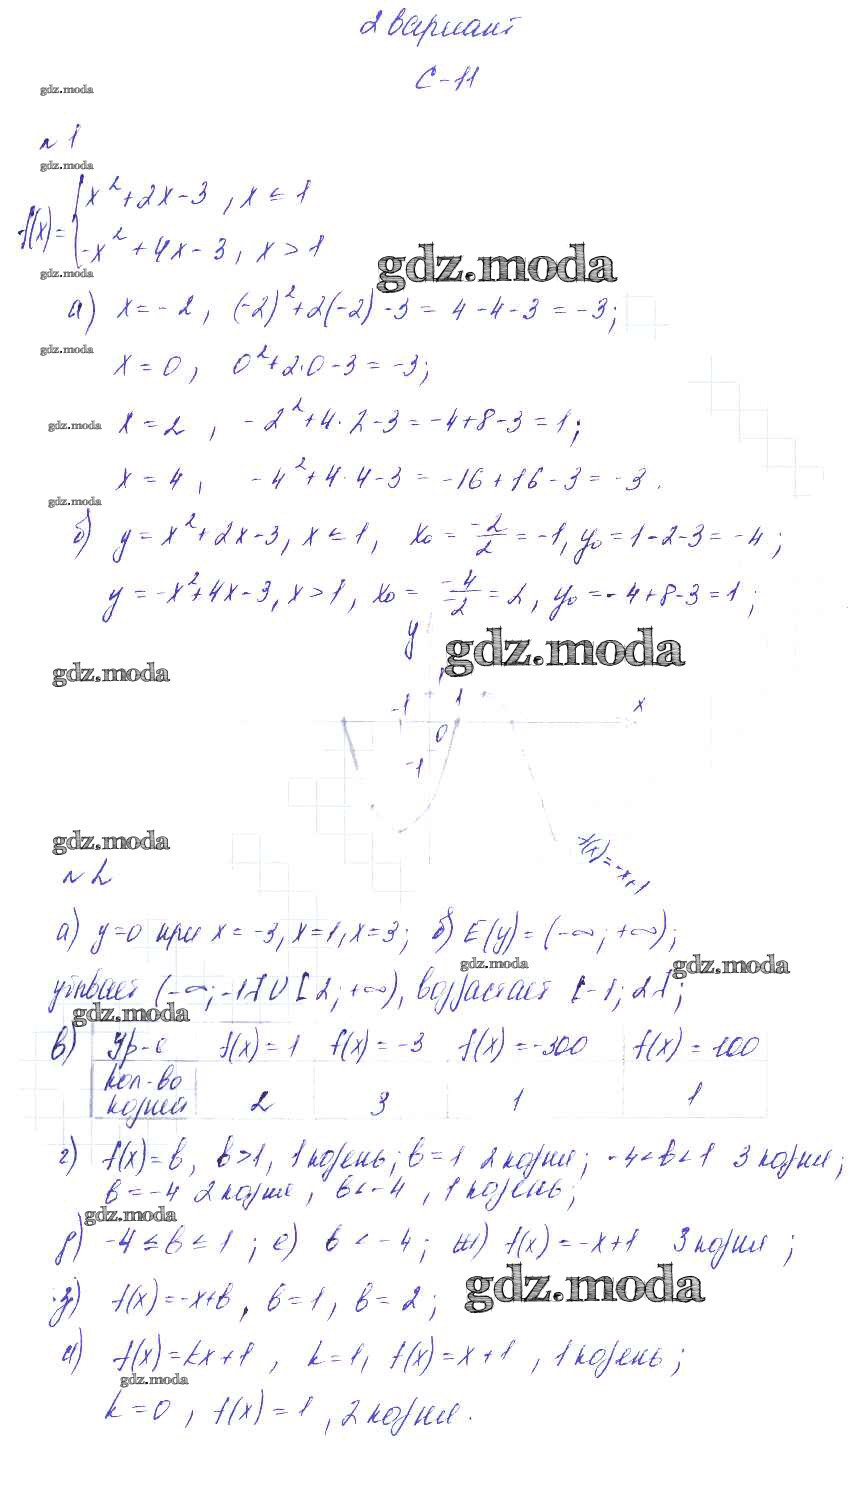 2 вариант
С-11
gdz.moda
№1
gdz.moda
f(x)= { x²+2x-3, x≤1
-x²+4x-3, x>1
gdz.moda
gdz.moda
а) x=-2, (-2)²+2(-2)-3=4-4-3=-3;
gdz.moda
x=0, 0²+2·0-3=-3;
gdz.moda
x=2, -2²+4·2-3=-4+8-3=1;
x=4, -4²+4·4-3=-16+16-3=-3.
gdz.moda
б) y=x²+2x-3, x≤1, x₀=-2/2=-1, y₀=1-2-3=-4;
y=-x²+4x-3, x>1, x₀=-4/-2=2, y₀=-4+8-3=1;
y
gdz.moda
gdz.moda
-1 1 x
0
-1
gdz.moda
f(x)=-x+1
№2
а) y=0 при x=-3, x=1, x=3; б) E(y)=(-∞;+∞);
gdz.moda
gdz.moda
убывает (-∞;-1]U[2;+∞), возрастает [-1;2];
gdz.moda
в) Ур-е f(x)=1 f(x)=-3 f(x)=-300 f(x)=100
кол-во
корней 2 3 1 1
г) f(x)=b, b>1, 1 корень; b=1 2 корня; -4<b<1 3 корня;
b=-4 2 корня, b<-4, 1 корень;
gdz.moda
д) -4≤b≤1; е) b<-4; ж) f(x)=-x+1 3 корня;
gdz.moda
з) f(x)=-x+b, b=1, b=2;
и) f(x)=kx+1, k=1, f(x)=x+1, 1 корень;
gdz.moda
k=0, f(x)=1, 2 корня.